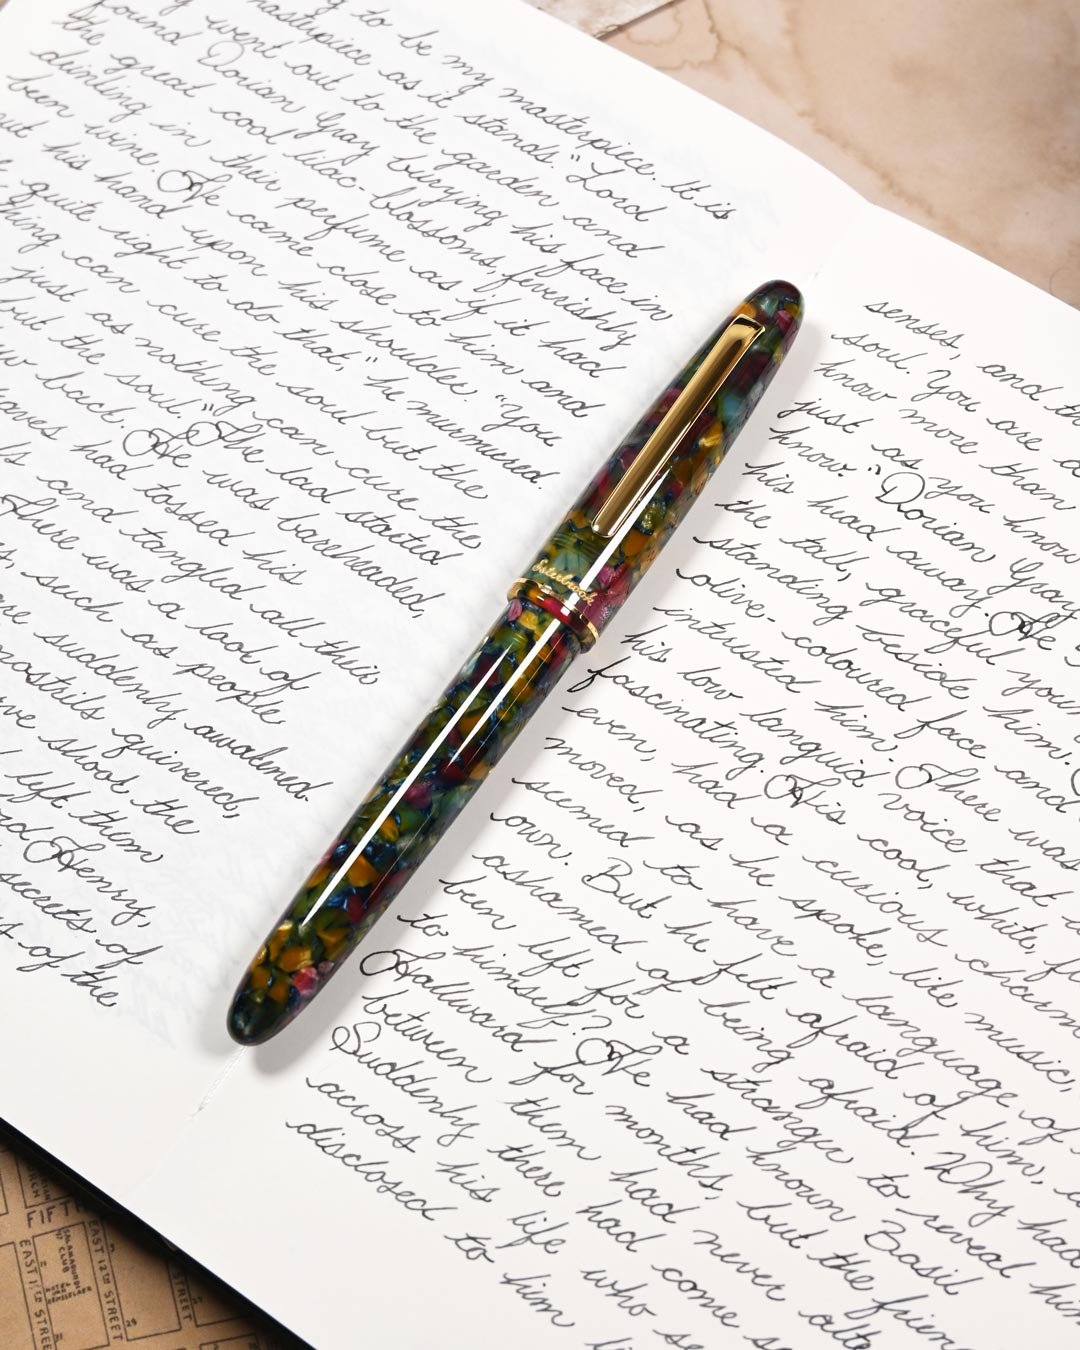 to be my masterpiece. It is
masterpiece as it stands." Lord
went out to the garden and
found Dorian Gray burying his face in
the great cool lilac-blossoms, feverishly
drinking in their perfume as if it had
been wine. He came close to him and
his hand upon his shoulder. "You
quite right to do that," he murmured.
thing can cure the soul but the
just as nothing can cure the
but the soul." The lad started
back. He was bareheaded,
had tossed his
and tangled all their
There was a look of
such as people
suddenly awakened.
nostrils quivered,
shook the
left them
Henry,
secrets of
of the
senses, and
soul. You are a
know more than
just as you know
know." Dorian Gray
his head away. He
the tall, graceful young
standing beside him.
olive-coloured face and
interested him. There was
his low languid voice that
fascinating. His cool, white,
even, had a curious charm
moved, as he spoke, like music,
seemed to have a language of
own. But he felt afraid of him,
ashamed of being afraid. Why had
been left for a stranger to reveal him
to himself? He had known Basil
Hallward for months, but the
between them had never
Suddenly there had come
across his life who
disclosed to him
Esterbrook
EAST 12TH STREET
EAST 11TH STREET
SALAMAGUNDI
CLUB